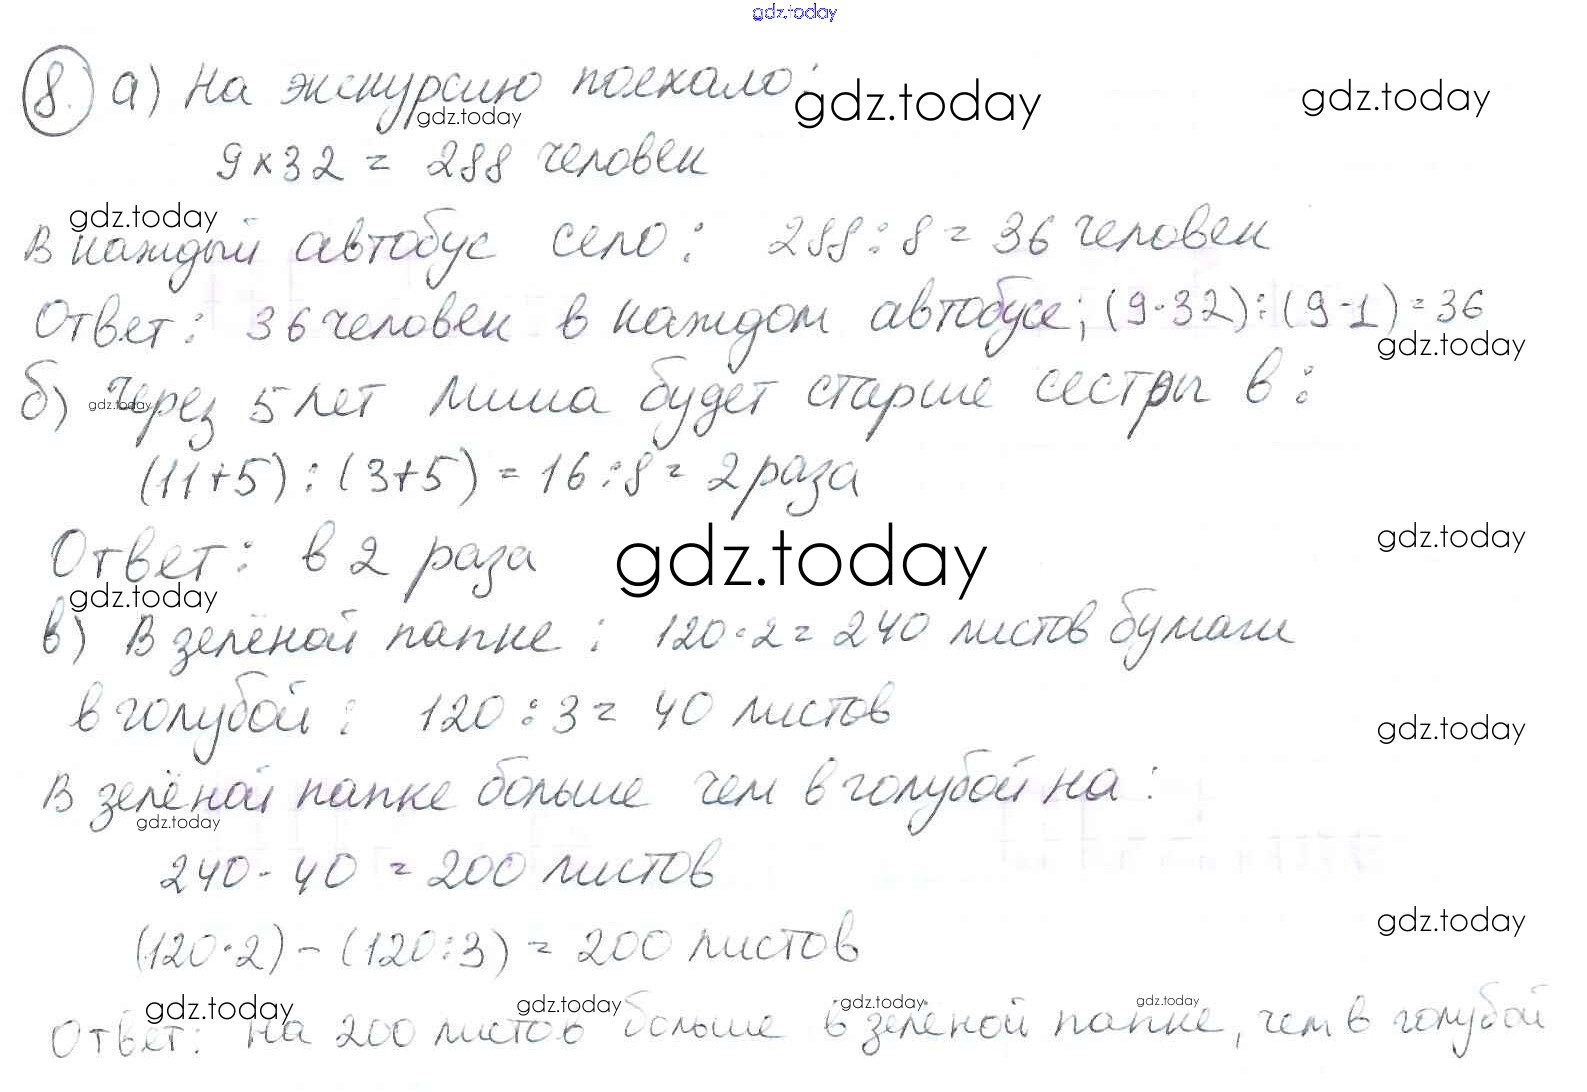 gdz.today
8. а) На экскурсию поехало:
gdz.today gdz.today gdz.today
9 × 32 = 288 человек
gdz.today
В каждый автобус село: 288 : 8 = 36 человек
Ответ: 36 человек в каждом автобусе; (9·32):(9-1)=36
gdz.today
б) Через 5 лет Миша будет старше сестры в:
gdz.today
(11+5) : (3+5) = 16 : 8 = 2 раза
Ответ: в 2 раза
gdz.today gdz.today
gdz.today
в) В зелёной папке : 120·2= 240 листов бумаги
в голубой : 120 : 3 = 40 листов
gdz.today
В зелёной папке больше чем в голубой на:
gdz.today
240 - 40 = 200 листов
gdz.today
(120·2) – (120:3) = 200 листов
gdz.today gdz.today gdz.today gdz.today
Ответ: на 200 листов больше в зелёной папке, чем в голубой